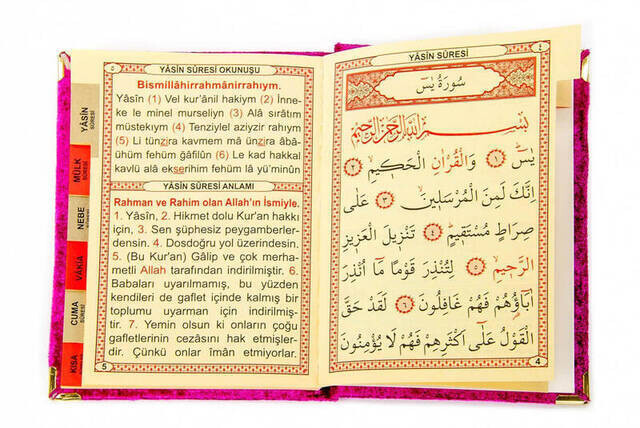 YÂSİN SÛRESİ OKUNUŞU
Bismillâhirrahmânirrahıym.
Yâsîn (1) Vel kur'ânil hakiym (2) İnne-
ke le minel murseliyn (3) Alâ sırâtım
müstekıym (4) Tenziylel aziyzir rahıym
(5) Li tünzira kavmem mâ ünzira âbâ-
ühüm fehüm ğafilûn (6) Le kad hakkal
kavlü alâ ekserihim fehüm lâ yü'minûn
YÂSİN SÛRESİ ANLAMI
Rahman ve Rahim olan Allah'ın İsmiyle.
1. Yâsîn, 2. Hikmet dolu Kur'an hakkı
için, 3. Sen şüphesiz peygamberler-
densin. 4. Dosdoğru yol üzerindesin.
5. (Bu Kur'an) Gâlip ve çok merha-
metli Allah tarafından indirilmiştir. 6.
Babaları uyarılmamış, bu yüzden
kendileri de gaflet içinde kalmış bir
toplumu uyarman için indirilmiş-
tir. 7. Yemin olsun ki onların çoğu
gafletlerinin cezasını hak etmişler-
dir. Çünkü onlar îmân etmiyorlar.
5
YÂSİN SÛRESİ
MÜLK SÛRESİ
NEBE SÛRESİ
VÂKIA
CUMA SÛRESİ
KISA
YÂSİN SÛRESİ
٤
سُورَةُ يٰسٓ
بِسْمِ اللّٰهِ الرَّحْمٰنِ الرَّحِيمِ
يٰسٓ ١ وَالْقُرْاٰنِ الْحَكِيمِ ٢
اِنَّكَ لَمِنَ الْمُرْسَلِينَ ٣ عَلٰى
صِرَاطٍ مُسْتَقِيمٍ ٤ تَنْزِيلَ الْعَزِيزِ
الرَّحِيمِ ٥ لِتُنْذِرَ قَوْمًا مَٓا اُنْذِرَ
اٰبَٓاؤُهُمْ فَهُمْ غَافِلُونَ ٦ لَقَدْ حَقَّ
الْقَوْلُ عَلٰٓى اَكْثَرِهِمْ فَهُمْ لَا يُؤْمِنُونَ
4